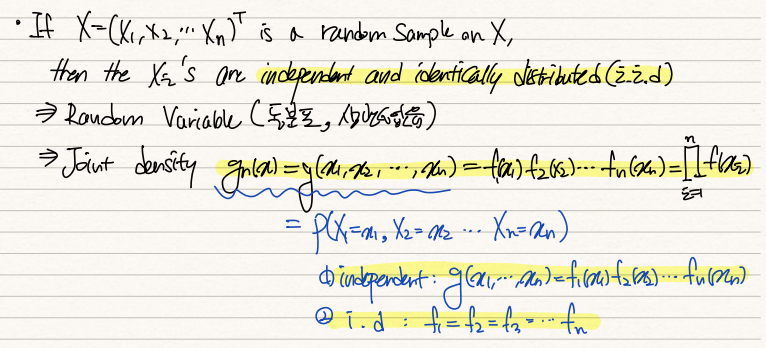 • If X=(X₁, X₂, ⋯ Xn)ᵀ is a random sample on X,
then the Xi's are independent and identically distributed (i.i.d)
⇒ Random Variable (
⇒ Joint density gn(x) = g(x₁, x₂, ⋯, xn) = f(x₁) f₂(x₂) ⋯ fn(xn) = ∏ⁿᵢ₌₁ f(xi)
= P(X₁=x₁, X₂=x₂ ⋯ Xn=xn)
① independent : g(x₁, ⋯, xn) = f₁(x₁) f₂(x₂) ⋯ fn(xn)
② i.d : f₁ = f₂ = f₃ = ⋯ fn